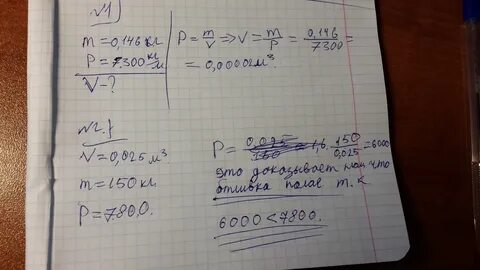 №1
m = 0,146 кг
P = 7300 кг/м
V - ?
P = m/V => V = m/P = 0,146/7300 =
= 0,00002 м³
№2.
V = 0,025 м³
m = 150 кг
P = 7800.
P = 150/0,025 = 6000
это доказывает нам что
отливка полая т.к
6000 < 7800.